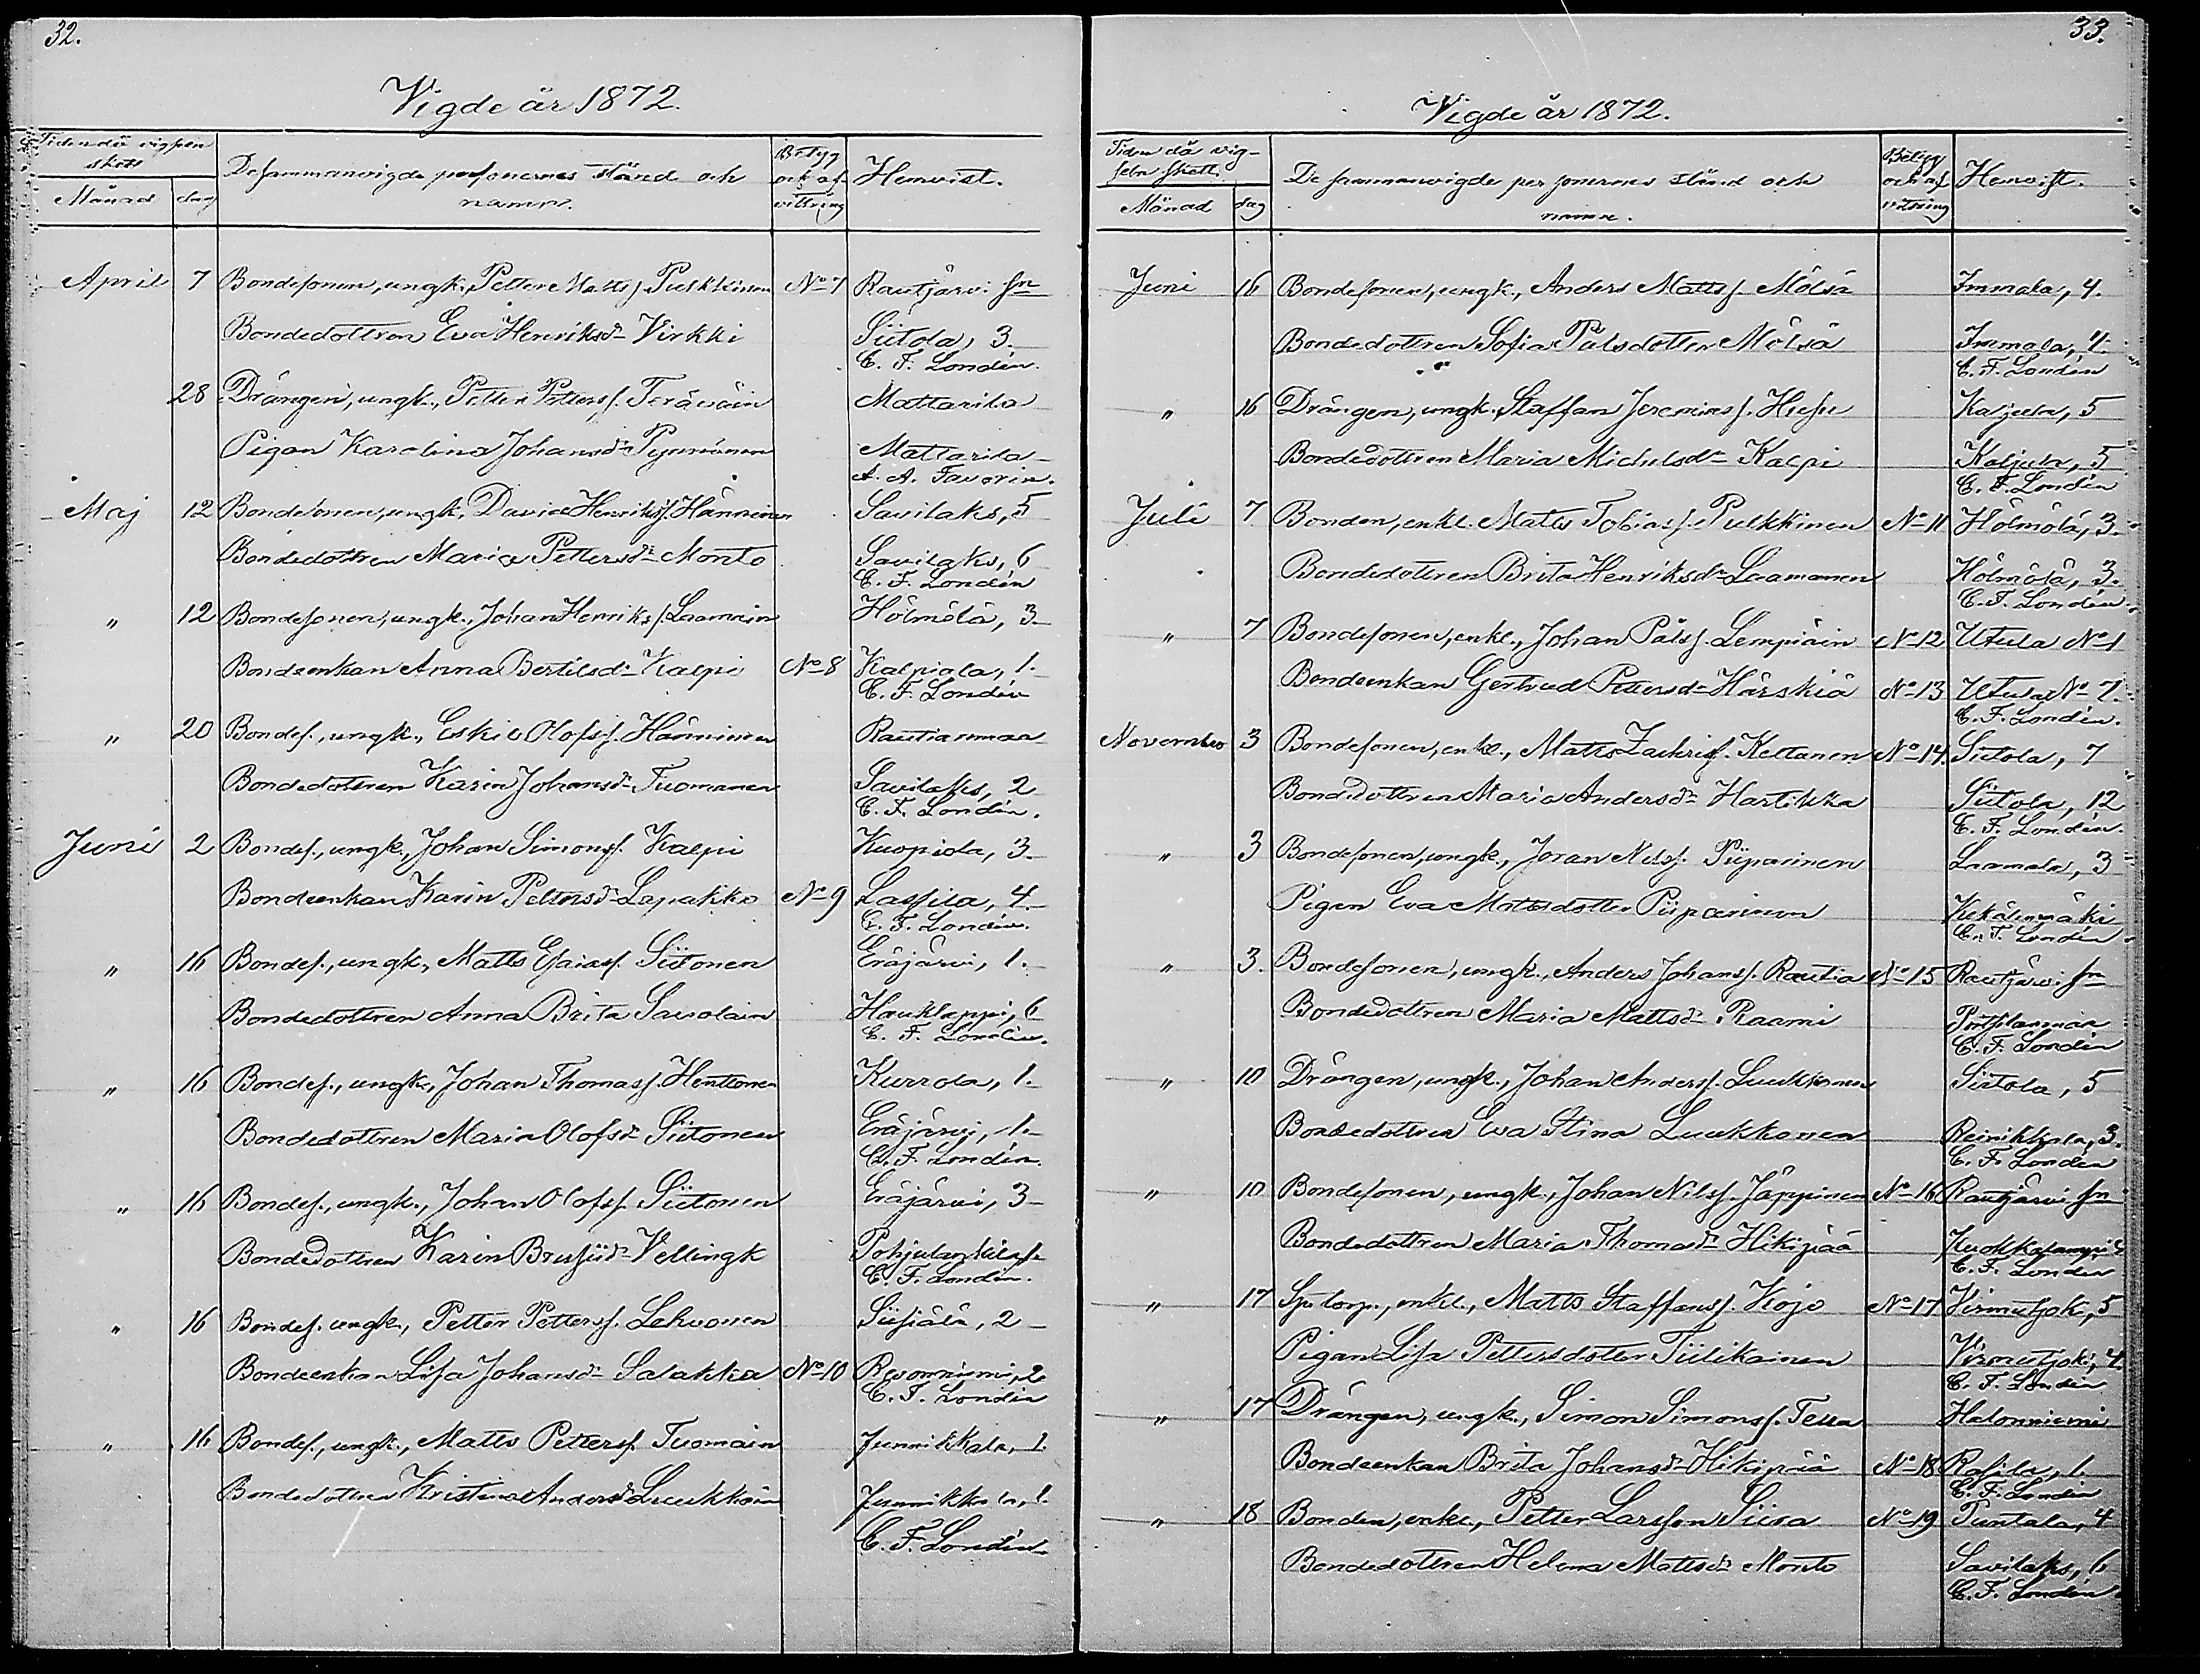 32.
Vigde år 1872.
Tiden då vigseln skett
Månad dag
De sammanvigde personernes stånd och namn.
Betyg och af-vittring
Hemvist.
April 7 Bondesonen, ungk. Petter Matts. Pulkkinen No 7 Rautjärvi sn
Bondedottren Eva Henriksdr Virkki Siitola, 3.
C. F. Londén.
28 Drängen, ungk., Petter Petters. Teräväin Mattarila
Pigan Karolina Johansdr Mattarila
A. A. Favorin.
Maj 12 Bondesonen, ungk. David Henriks. Hänninen Savilaks, 5
Bondedottren Maria Pettersdr Monto Savilaks, 6
C. F. Londén
" 12 Bondesonen, ungk., Johan Henriks. Laamain Hölmölä, 3
Bondeenkan Anna Bertilsdr Kaipi No 8 Kalpiala, 1.
C. F. Londén
" 20 Bondes., ungk., Eskil Olofs. Hänninen Rautianmaa
Bondedottren Karin Johansdr Tuomanen Savilaks, 2
C. F. Londén.
Juni 2 Bondes., ungk., Johan Simons. Kaipi Kuopiola, 3.
Bondeenkan Karin Pettersdr Lapakko No 9 Lassila, 4.
C. F. Londén.
" 16 Bondes., ungk., Matts Esaias. Siitonen Eräjärvi, 1.
Bondedottren Anna Brita Savolain Haukkappi, 6
C. F. Londén.
" 16 Bondes., ungk., Johan Thomas. Henttonen Kurrola, 1.
Bondedottren Maria Olofsdr Siitonen Eräjärvi, 1.
C. F. Londén.
" 16 Bondes., ungk., Johan Olofs. Siitonen Eräjärvi, 3
Bondedottren Karin Vellingk
C. F. Londén.
" 16 Bondes. ungk., Petter Petters. Lehvonen Siisiälä, 2
Bondeenkan Lisa Johansdr Salakka No 10 2
C. F. Londén
" 16 Bondes., ungk., Matts Petters. Tuomain Junnikkala, 1.
Bondedottren Kristina Andersdr Luukkain Junnikkala, 1.
C. F. Londén
33.
Vigde år 1872.
Tiden då vigseln skett.
Månad dag
De sammanvigde personernes stånd och namn.
Betyg och af vittring
Hemvist.
Juni 16 Bondesonen, ungk., Anders Matts. Mölsä Immala, 4.
Bondedottren Sofia Pålsdotter Mölsä Immala, 4.
C. F. Londén
" 16 Drängen, ungk., Staffan Jeremias. Husu Kaljula, 5
Bondedottren Maria Michelsdr Kaipi Kaljula, 5
C. F. Londén
Juli 7 Bonden, enkl. Matts Tobias. Pulkkinen No 11 Hölmölä, 3.
Bondedottren Brita Henriksdr Laamanen Hölmölä, 3.
C. F. Londén.
" 7 Bondesonen, enkl., Johan Påls. Lempiäin No 12 Utula No 1
Bondeenkan Gertrud Pettersdr Härskiä No 13 Utula No 7.
C. F. Londén.
November 3 Bondesonen, enkl., Matts Zachris. Keltanen No 14 Siitola, 7
Bondedottren Maria Andersdr Hartikka Siitola, 12
C. F. Londén.
" 3 Bondesonen, ungk., Jöran Nils. Piiparinen Laamala, 3
Pigan Eva Mattsdotter Piiparinen Kekäleenmäki
C. F. Londén
" 3. Bondesonen, ungk., Anders Johans. Rautia No 15 Rautjärvi sn
Bondedottren Maria Mattsdr Raami
C. F. Londén
" 10 Drängen, ungk., Johan Anders. Luukkonen Siitola, 5
Bondedottren Eva Stina Luukkonen Reinikkala, 3.
C. F. Londén
" 10 Bondesonen, ungk., Johan Nils. Jäppinen No 16 Rautjärvi sn
Bondedottren Maria Thomasdr Hikipää
C. F. Londén
" 17 Sp. torp., enkl., Matts Staffans. Kojo No 17 Virmutjoki, 5
Pigan Lisa Pettersdotter Tiilikainen Virmutjoki, 4.
C. F. Londén
" 17 Drängen, ungk., Simon Simons. Tella Halonniemi
Bondeenkan Brita Johansdr Hikipää No 18 Rasila, 1.
C. F. Londén
" 18 Bonden, enkl., Petter Larsson Siira No 19 Puntala, 4
Bondedottren Helena Mattsdr Monto Savilaks, 6
C. F. Londén